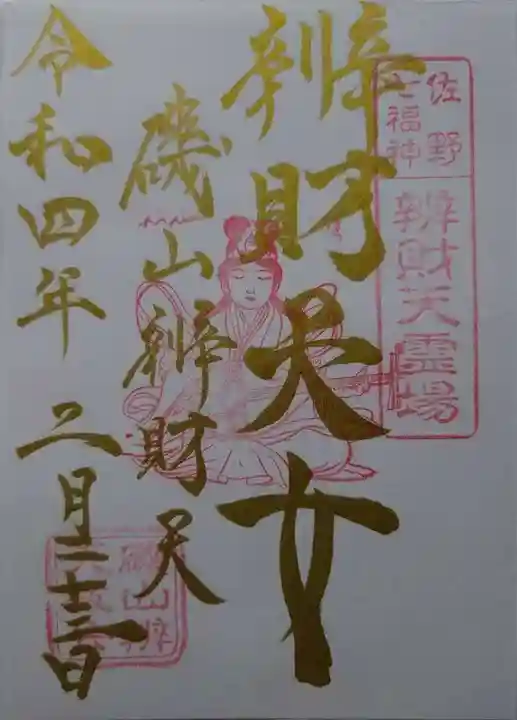 佐野
七福神
辨財天霊場
辨財天女
磯山辨財天
令和四年二月二十三日